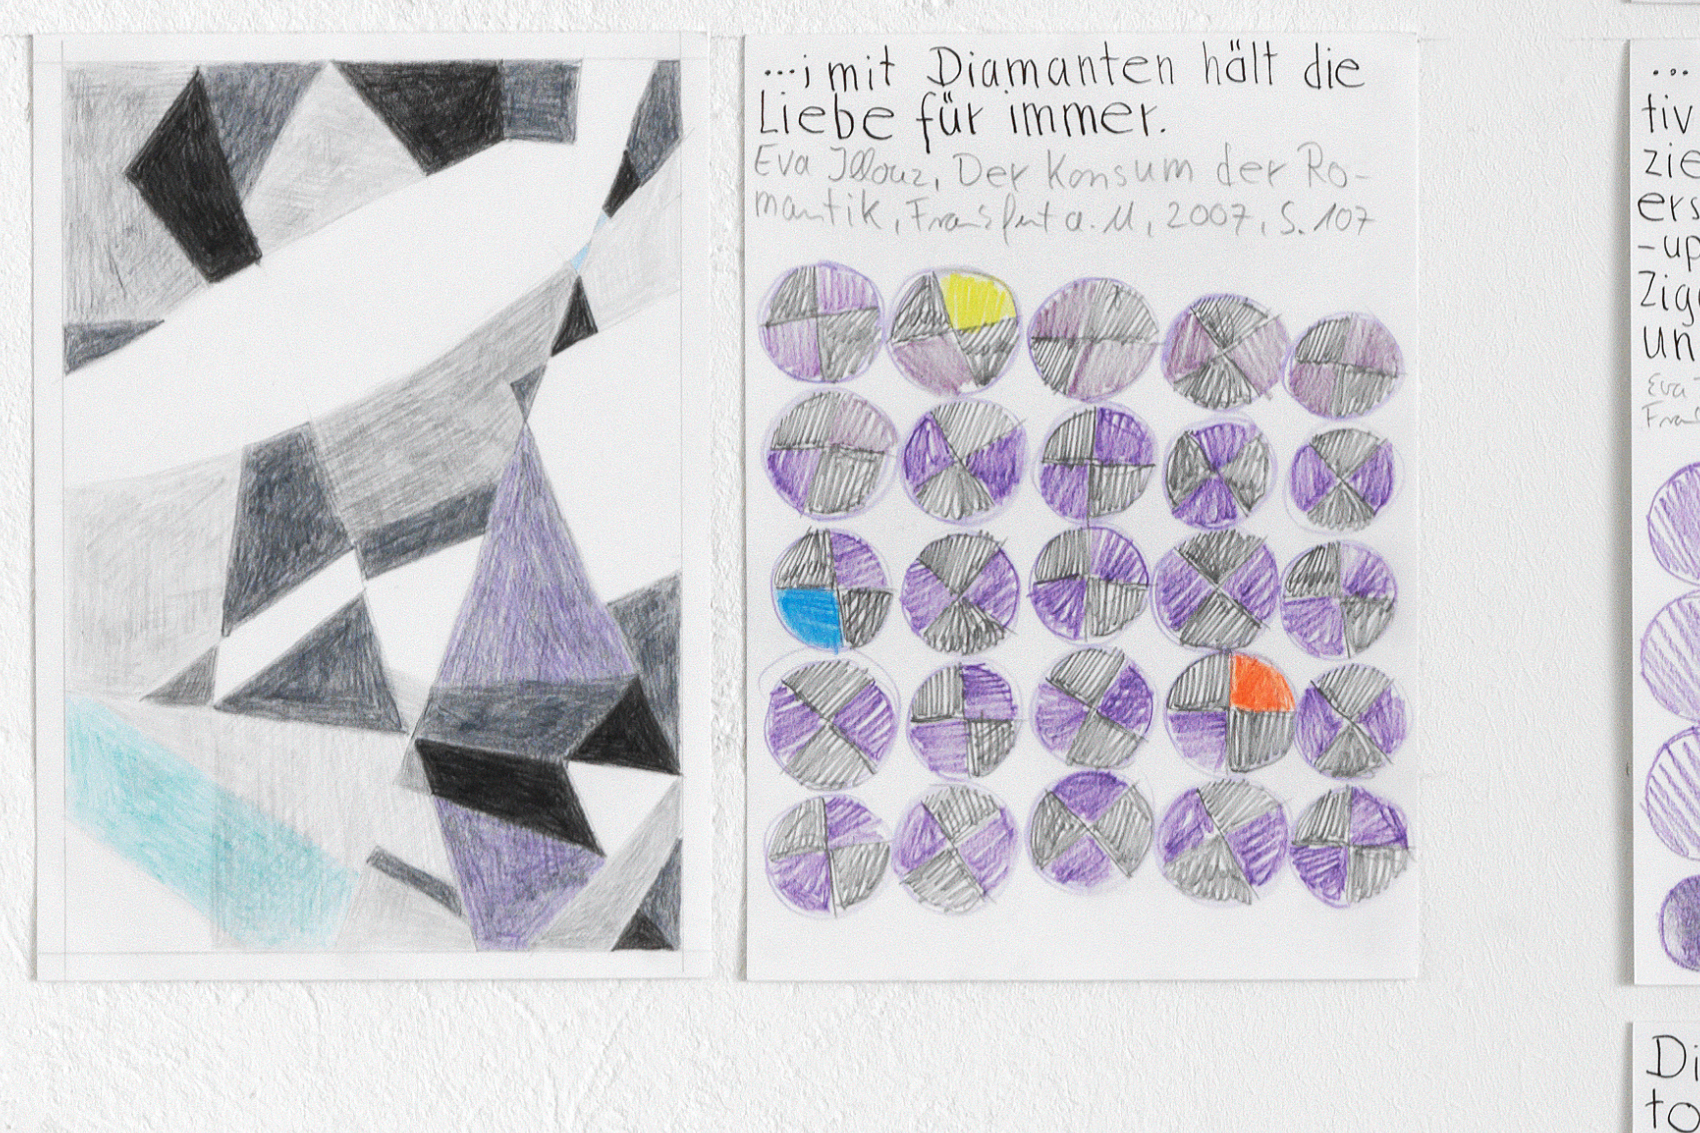 ...; mit Diamanten hält die
Liebe für immer.
Eva Illouz, Der Konsum der Ro-
mantik, Frankfurt a. M, 2007, S. 107
...
tiv
zie
ers
-up
Zig
un
Eva
Fran
Di
to